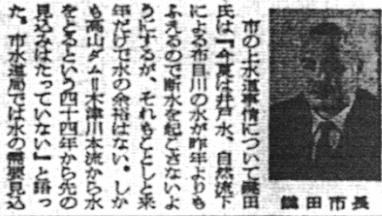 市の上水道事情について鍵田
氏は『今夏は井戸水、自然流下
による布目川の水が昨年よりも
ふえるので断水を起ごさないよ
うにするが、それもことしと来
年だけで水の余裕はない。しか
も高山ダム＝木津川本流から水
をとるという四十四年から先の
見込みはたっていない』と語っ
た。市水道局では水の需要見込
鍵田市長